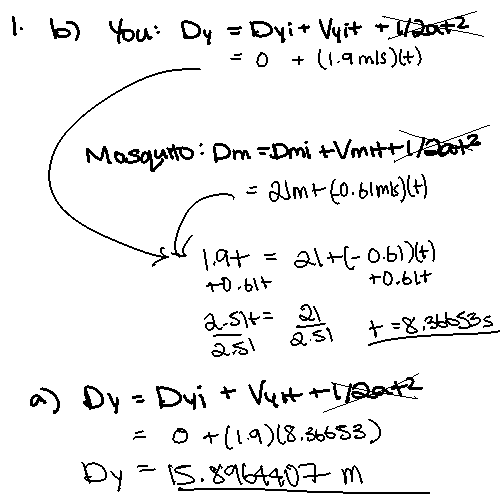 1. b) You: Dy = Dyi + Vyit + 1/2at²
= 0 + (1.9m/s)(t)
Mosquito: Dm = Dmi + Vmit + 1/2at²
= 21m + (-0.61m/s)(t)
1.9t = 21 + (-0.61)(t)
+0.61t +0.61t
2.51t = 21 t = 8.36653s
2.51 2.51
a) Dy = Dyi + Vyit + 1/2at²
= 0 + (1.9)(8.36653)
Dy = 15.8964407 m